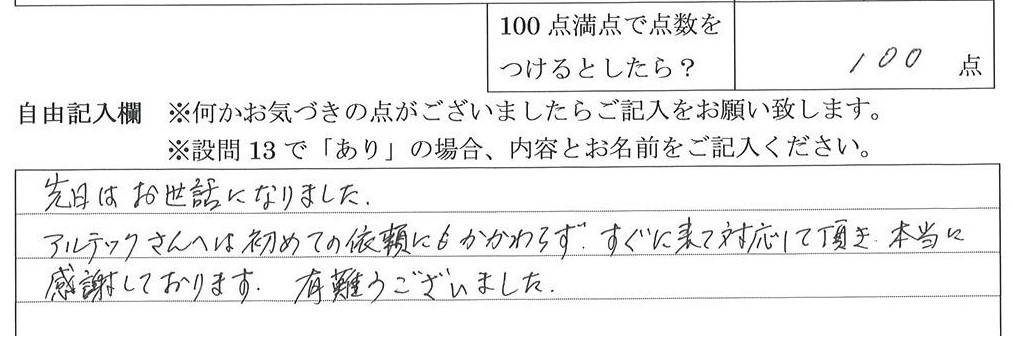 100 点満点で点数を
つけるとしたら？
100 点
自由記入欄 ※何かお気づきの点がございましたらご記入をお願い致します。
※設問 13 で「あり」の場合、内容とお名前をご記入ください。
先日はお世話になりました.
アルテックさんへは初めての依頼にもかかわらず.すぐに来て対応して頂き.本当に
感謝しております. 有難うございました.